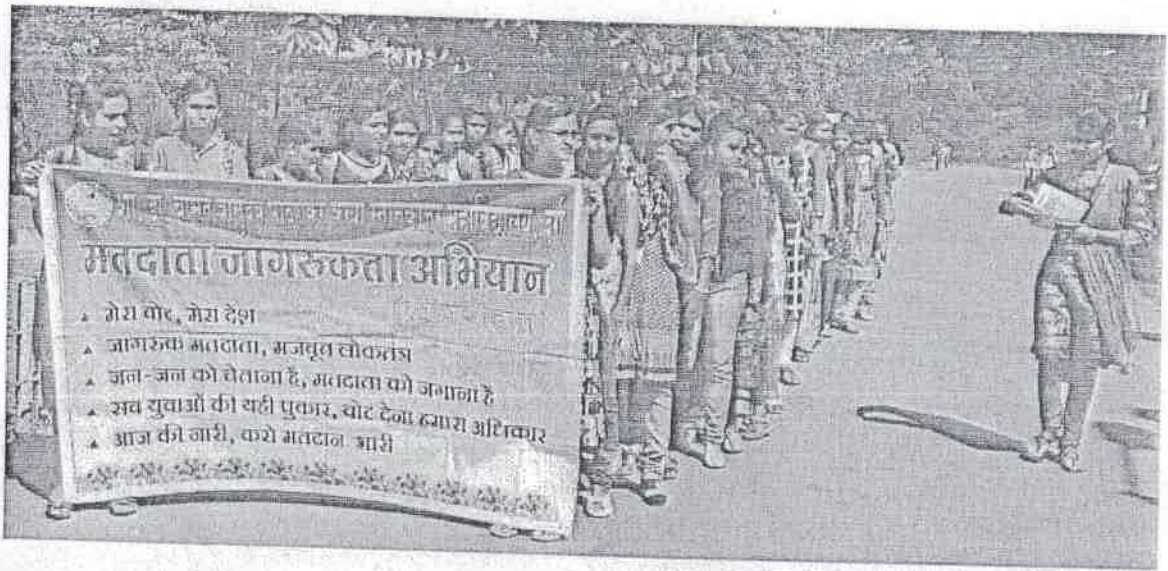 मतदाता जागरुकता अभियान
मेरा वोट, मेरा देश
जागरुक मतदाता, मजबूत लोकतंत्र
जन-जन को चेताना है, मतदाता को जगाना है
सब युवाओं की यही पुकार, वोट देना हमारा अधिकार
आज की नारी, करो मतदान भारी